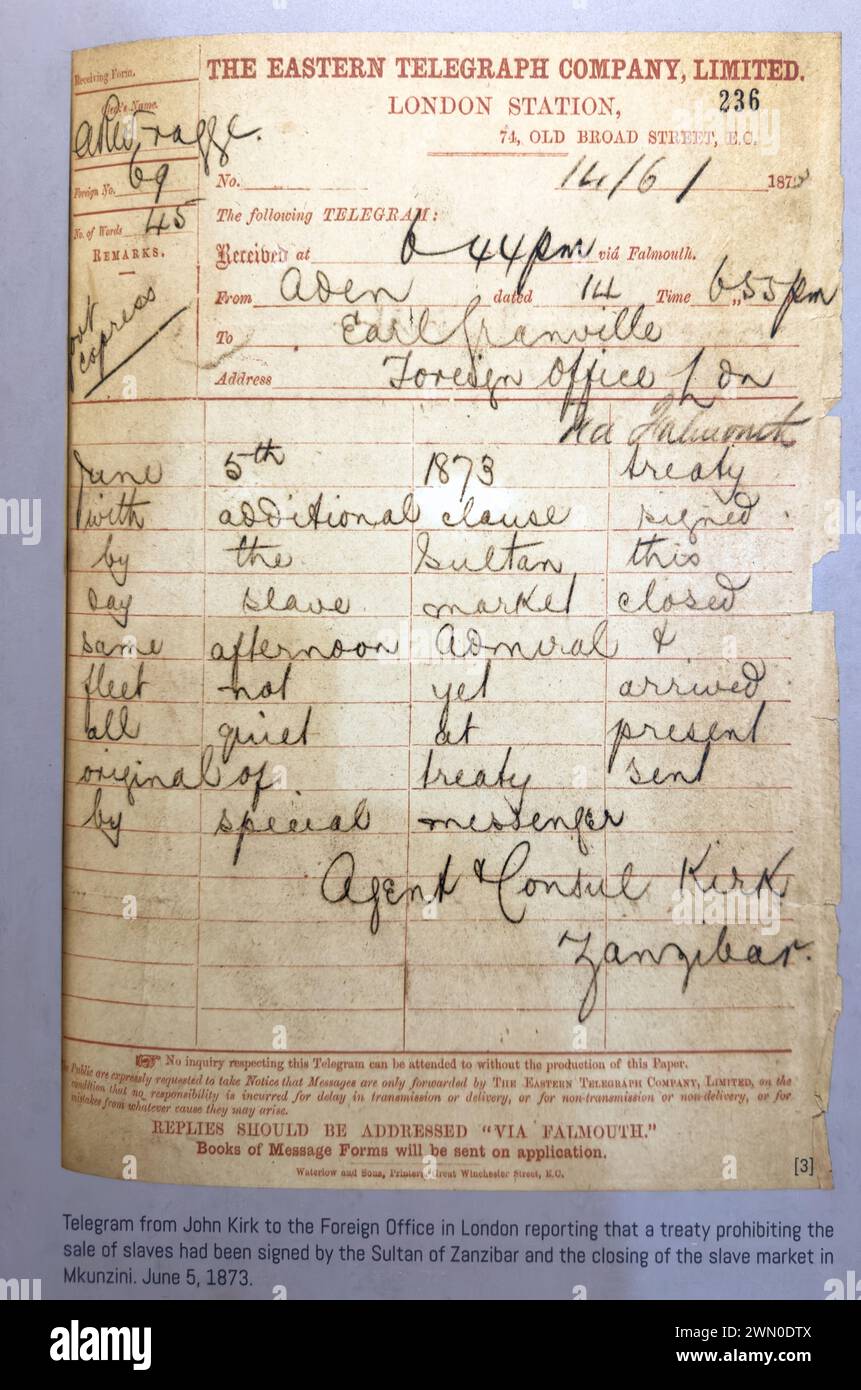 Receiving Form.
Clerk's Name.
Foreign No. 69
No. of Words 45
REMARKS.
express
THE EASTERN TELEGRAPH COMPANY, LIMITED.
LONDON STATION,
236
74, OLD BROAD STREET, E.C.
No. 14/6/ 187
The following TELEGRAM:
Received at 6 44pm viâ Falmouth.
From Aden dated 14 Time 6 „ 55 pm
To Earl Granville
Address Foreign Office Ldn
via Falmouth
June 5th 1873 treaty
with additional clause signed
by the Sultan this
day slave market closed
same afternoon Admiral &
fleet not yet arrived
all quiet at present
original of treaty sent
by special messenger
Agent & Consul Kirk
Zanzibar.
No inquiry respecting this Telegram can be attended to without the production of this Paper.
The Public are expressly requested to take Notice that Messages are only forwarded by THE EASTERN TELEGRAPH COMPANY, LIMITED, on the
condition that no responsibility is incurred for delay in transmission or delivery, or for non-transmission or non-delivery, or for
mistakes from whatever cause they may arise.
REPLIES SHOULD BE ADDRESSED "VIA FALMOUTH."
Books of Message Forms will be sent on application.
Waterlow and Sons, Printers, Great Winchester Street, E.C.
[3]
Telegram from John Kirk to the Foreign Office in London reporting that a treaty prohibiting the
sale of slaves had been signed by the Sultan of Zanzibar and the closing of the slave market in
Mkunzini. June 5, 1873.
alamy
Image ID: 2WN0DTX
www.alamy.com